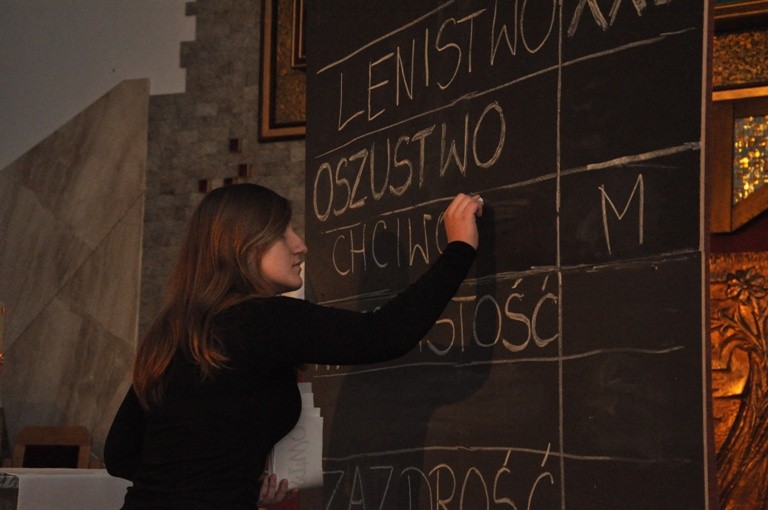 LENISTWO
OSZUSTWO
CHCIWO M
STOŚĆ
ZAZDROŚĆ